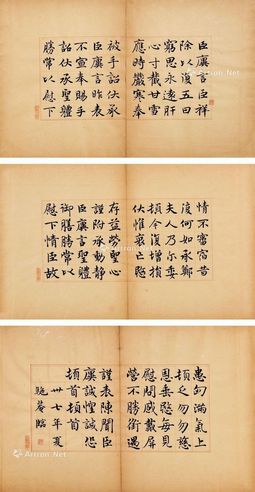 臣廙言臣祥
除以復五日
窮思永遠肝
心寸截甘雪
應時嚴寒奉
被手詔伏承
臣廙言昨表
不宣奉賜手
詔伏承聖體
勝常以慰下
情不審宿昔
復何如承鄭
夫人乃爾委
頓今復增損
伏惟哀亡愍
存益勞聖心
謹附承動靜
臣廙言聖體
御膳勝常以
慰下情臣故
患匈滿氣上
頓乏勿勿慈
恩垂愍每見
慰問感戴屏
營不勝銜遇
謹表陳聞臣
廙誠惶誠恐
頓首頓首
卅七年夏
庵臨
Artron.Net
Artron.Net
Artron.Net